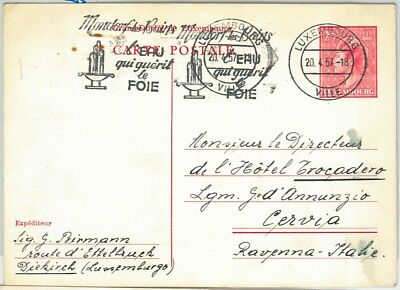 Mondorf-les-Bains
Mondorf-les-Bains
LUXEMBOURG
CARTE POSTALE
L'EAU
qui guérit
le
FOIE
20.4.57
VILLE
L'EAU
qui guérit
le
FOIE
LUXEMBOURG
20.4.57-18
VILLE
Monsieur le Directeur
de l'Hôtel Trocadero
Lgm. G. d'Annunzio
Cervia
Ravenna - Italie.
Expéditeur
Sig G. Birmann
route d'Ettelbruck
Diekirch (Luxemburgo)